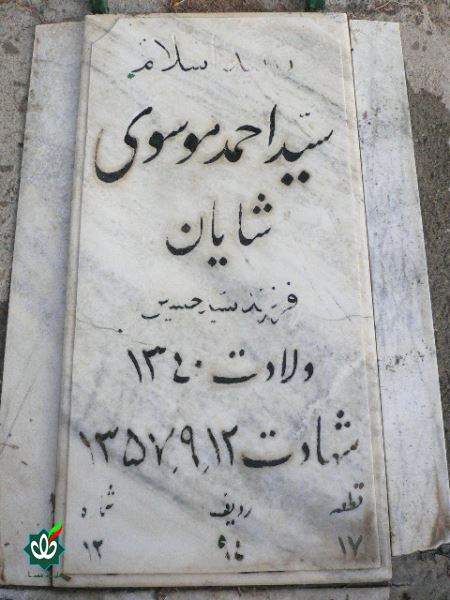 شهید اسلام
سیّد احمد موسوی
شایان
فرزند سید حسین
ولادت ۱۳۴۰
شهادت ۱۳۵۷٫۹٫۱۲
قطعه ردیف شماره
۱۷ ۱۲